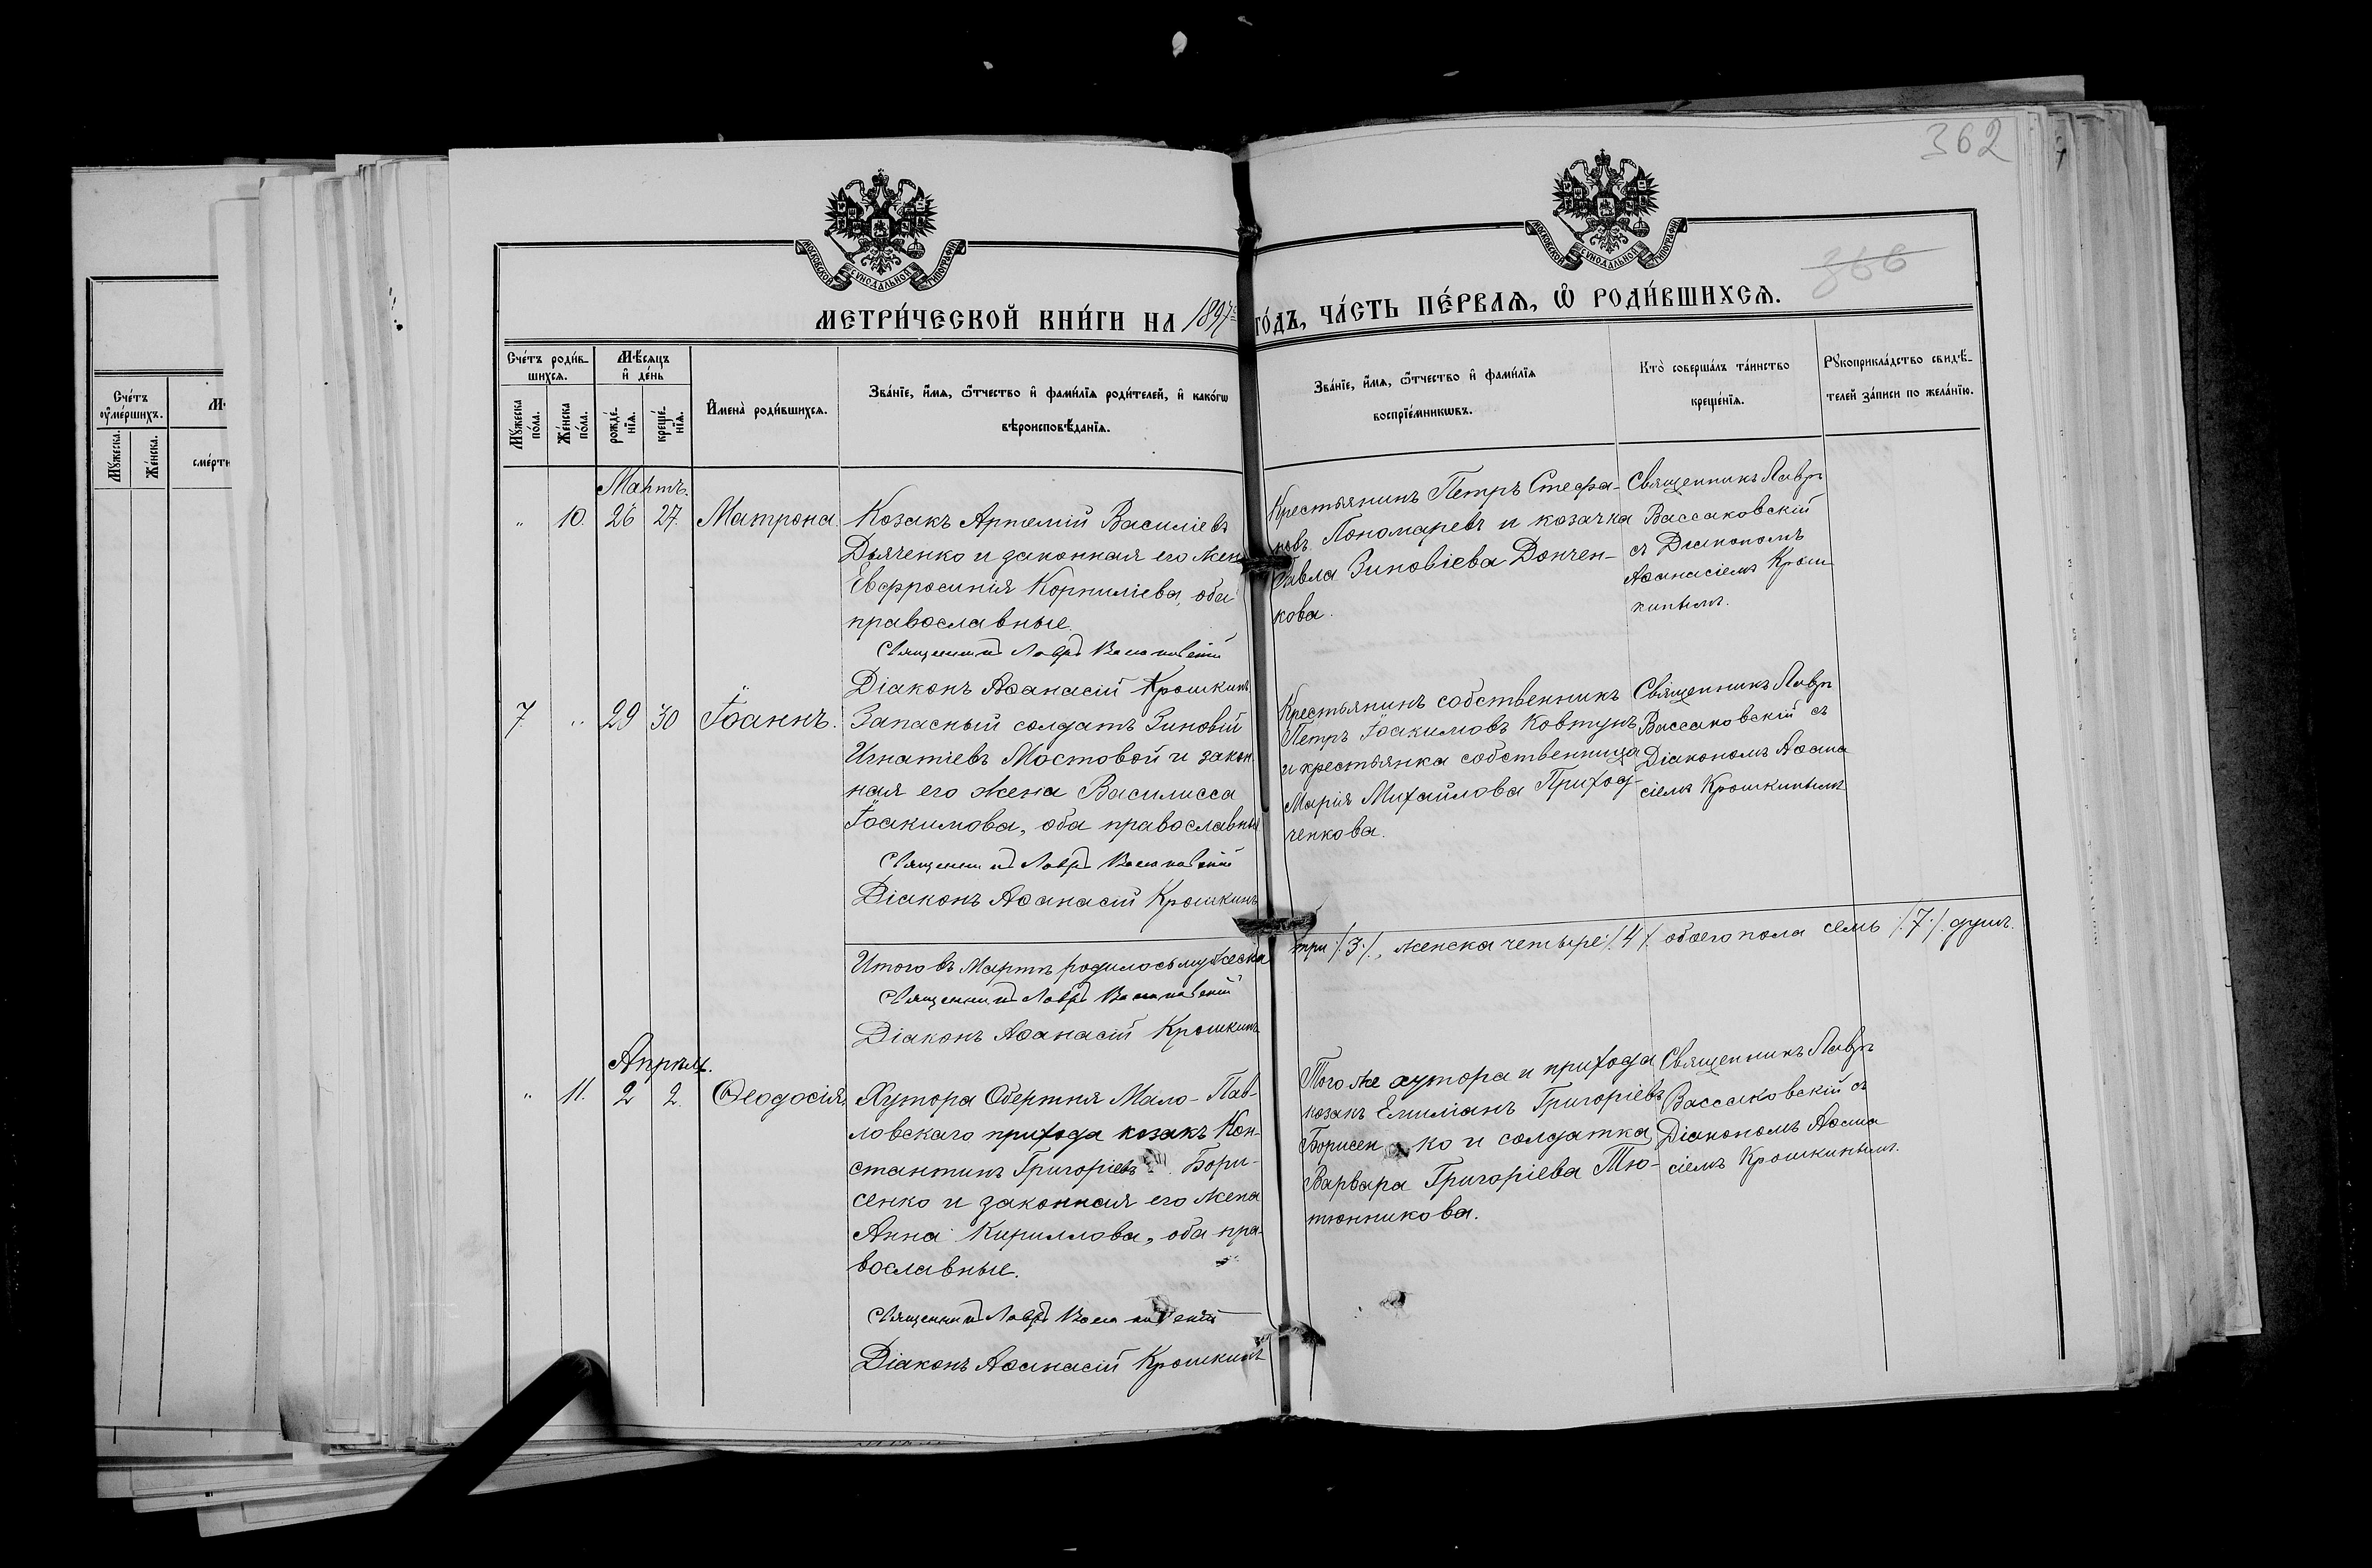 362
366
МОСКОВСКОЙ СѴНОДАЛЬНОЙ ТИПОГРАФІИ
МОСКОВСКОЙ СѴНОДАЛЬНОЙ ТИПОГРАФІИ
МЕТРИ́ЧЕСКОЙ КНИ́ГИ НА 1897й ГО́ДЪ, ЧА́СТЬ ПЕ́РВАѦ, Ѡ҆ РОДИ́ВШИХСѦ.
Сче́тъ ᲂу҆ме́ршихъ.
Мꙋ́жеска.
Же́нска.
сме́рти
Сче́тъ роди́вшихсѧ.
Мꙋ́жеска по́ла.
Же́нска по́ла.
Мѣ́сѧцъ и҆ де́нь
рожде́нїѧ.
креще́нїѧ.
И҆мена̀ роди́вшихсѧ.
Зва́нїе, и҆́мѧ, ѻ҆́тчество и҆ фами́лїѧ роди́телей, и҆ како́гѡ
вѣроисповѣ́данїѧ.
Зва́нїе, и҆́мѧ, ѻ҆́тчество и҆ фами́лїѧ
воспрїе́мникѡвъ.
Кто̀ соверша́лъ та́инство
креще́нїѧ.
Рꙋкоприкла́дство свидѣ́-
телей за́писи по жела́нїю.
Мартъ.
„ 10. 26 27. Матрона.
Козакъ Артемій Василіевъ
Дьяченко и законная его жен
Евфросинія Корниліева, оба
православные.
Священникъ Лавръ Вассаковскій
Діаконъ Аѳанасій Крошкинъ
Крестьянинъ Петръ Стефа-
новъ Пономаревъ и козачка
Павла Зиновіева Дончен-
кова.
Священникъ Лавръ
Вассаковскій
съ Діакономъ
Аѳанасіемъ Крош
кинымъ.
7. „ 29 30 Іоаннъ.
Запасный солдатъ Зиновій
Игнатіевъ Мостовой и закон
ная его жена Василисса
Іоакимова, оба православные
Священникъ Лавръ Вассаковскій
Діаконъ Аѳанасій Крошкинъ
Крестьянинъ собственникъ
Петръ Іоакимовъ Ковтунъ
и крестьянка собственница
Марія Михайлова Приход-
ченкова.
Священникъ Лавръ
Вассаковскій съ
Діакономъ Аѳана
сіемъ Крошкинымъ
Итого въ Мартѣ родилось мужеска три /:3:/, женска четыре /:4:/ обоего пола семь /:7:/ душъ.
Священникъ Лавръ Вассаковскій
Діаконъ Аѳанасій Крошкинъ
Апрѣль.
„ 11. 2 2. Ѳеодосія.
Хутора Обертня Мало-Пав-
ловскаго прихода козакъ Кон-
стантинъ Григоріевъ Бори-
сенко и законная его жена
Анна Кириллова, оба пра-
вославные.
Священникъ Лавръ Вассаковскій
Діаконъ Аѳанасій Крошкинъ
Того же хутора и прихода
козакъ Емиліанъ Григоріевъ
Борисенко и солдатка
Варвара Григоріева Тю-
тюнникова.
Священникъ Лавръ
Вассаковскій съ
Діакономъ Аѳана
сіемъ Крошкинымъ.